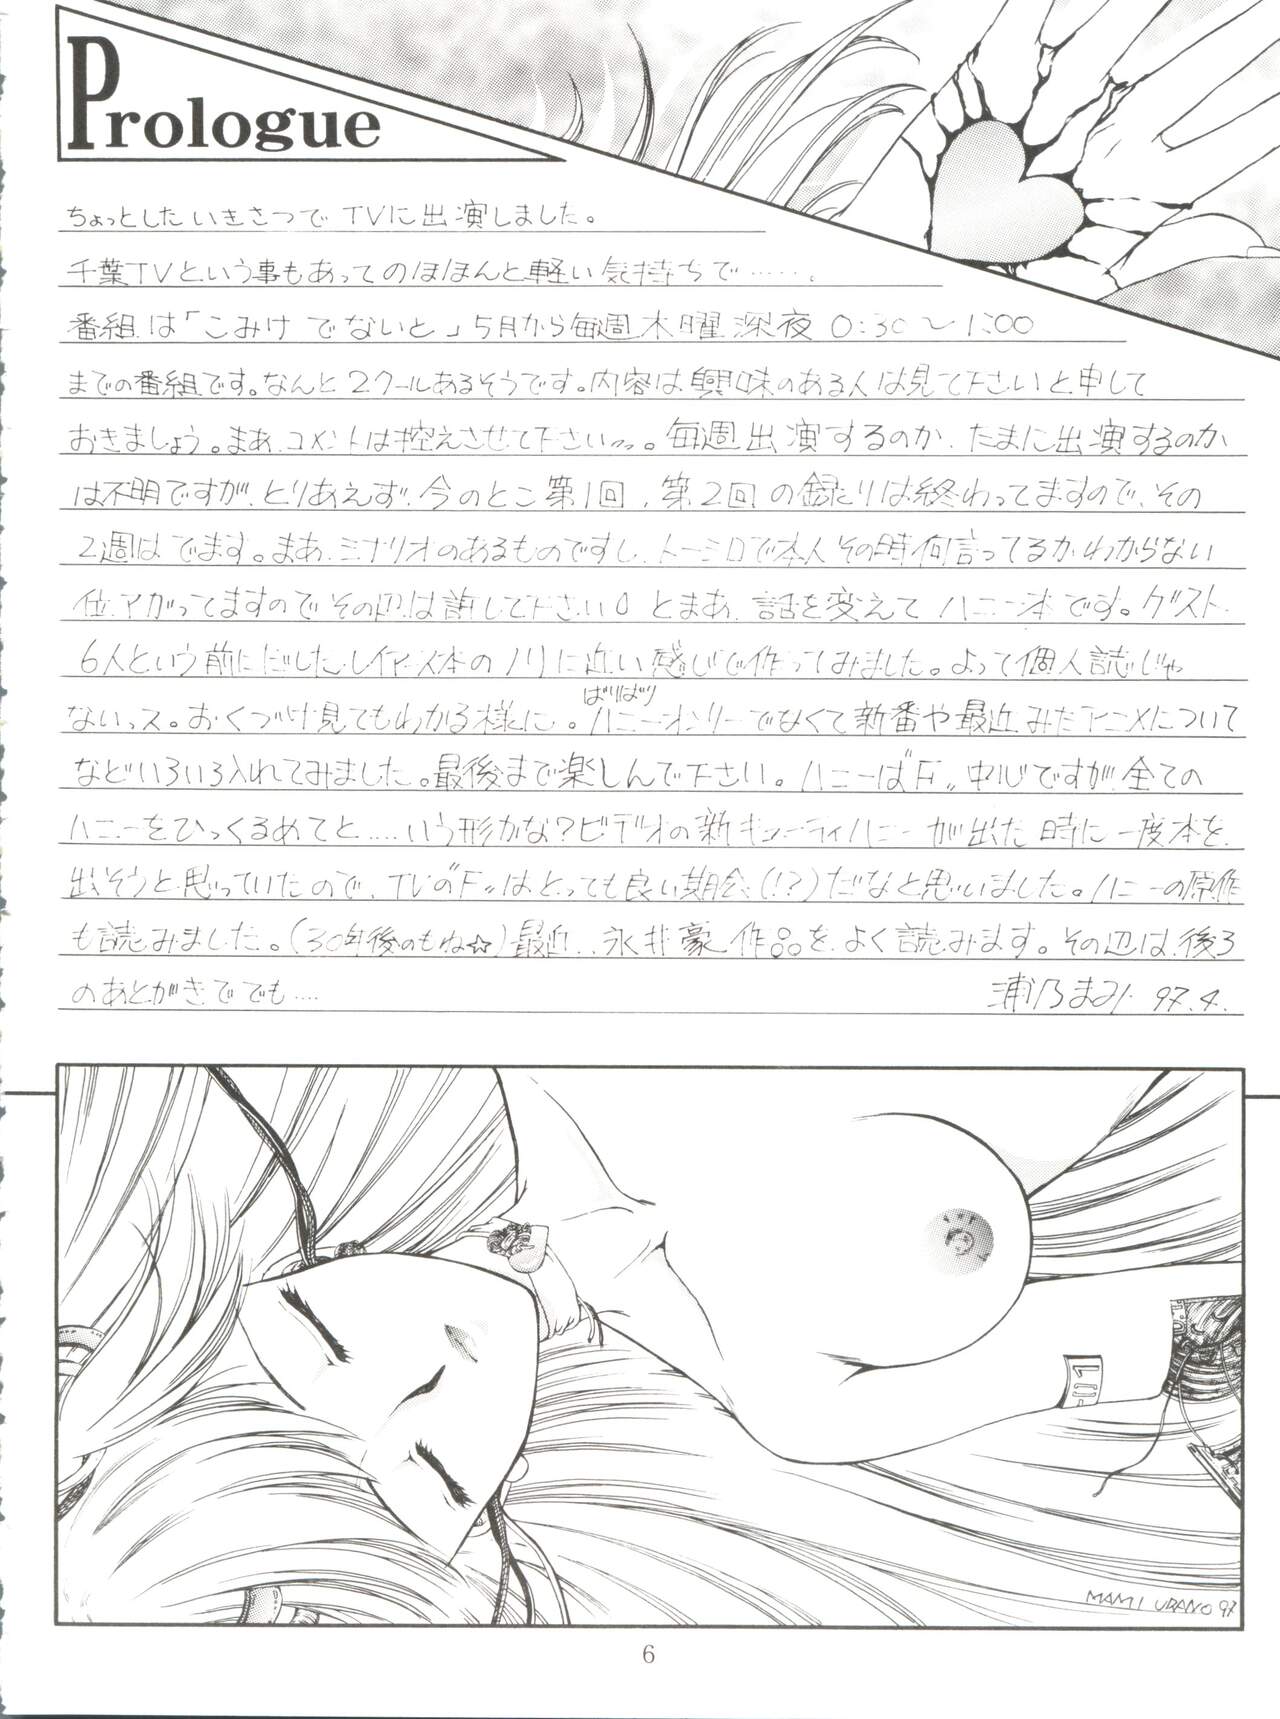 Prologue
ちょっとしたいきさつでTVに出演しました。
千葉TVという事もあってのほほんと軽い気持ちで……。
番組は「こみけでないと」5月から毎週木曜深夜0:30〜1:00
までの番組です。なんと2クールあるそうです。内容は興味のある人は見て下さいと申して
おきましょう。まあ、コメントは控えさせて下さいっっ。毎週出演するのか、たまに出演するのか
は不明ですが、とりあえず、今のとこ第1回、第2回の録とりは終わってますので、その
2週はでます。まあ、シナリオのあるものですし、トーシロで本人その時何言ってるかわからない
位、アガってますのでその辺は許して下さい0 とまあ、話を変えてハニー本です。ゲスト
6人という前にだしたレイアース本のノリに近い感じで作ってみました。よって個人誌じゃ
ないっス。おくづけ見てもわかる様に。ハニーオンリーでなくて新番や最近みたアニメについて
ばりばり
などいろいろ入れてみました。最後まで楽しんで下さい。ハニーは"F"中心ですが、全ての
ハニーをひっくるめてと……いう形かな?ビデオの新キューティハニーが出た時に一度本を
出そうと思っていたので、TVの"F"はとっても良い期会(!?)だなと思いました。ハニーの原作
も読みました。(30年後のもね☆)最近、永井豪作品をよく読みます。その辺は、後ろ
のあとがきででも……
浦乃まみ 97.4.
-01
MAMI URANO 97
6